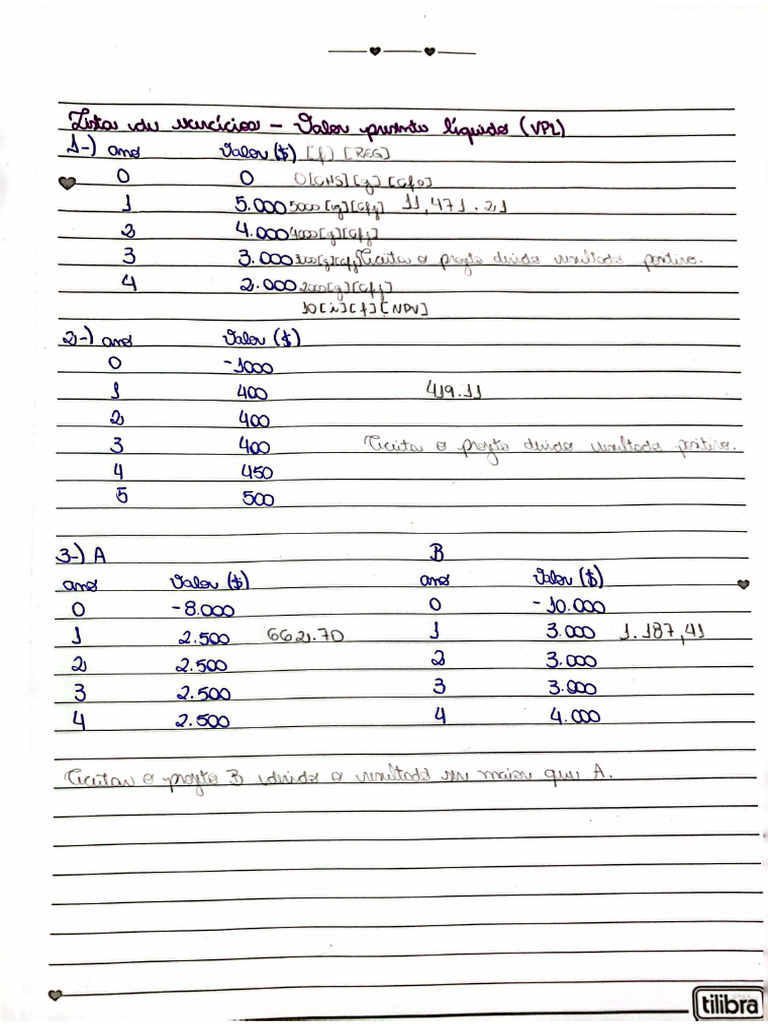 Lista de exercícios - Valor presente líquido (VPL)
1-) ano Valor ($) [f] [REG]
0 0 0[CHS][g][Cf0]
1 5.000 5000[g][Cfj] 11,471.21
2 4.000 4000[g][Cfj]
3 3.000 3000[g][Cfj] Aceita o projeto devido resultado positivo.
4 2.000 2000[g][Cfj]
10[i][f][NPV]
2-) ano Valor ($)
0 -1000
1 400 419.11
2 400
3 400 Aceita o projeto devido resultado positivo.
4 450
5 500
3-) A B
ano Valor ($) ano Valor ($)
0 -8.000 0 -10.000
1 2.500 6621.70 1 3.000 1.187,41
2 2.500 2 3.000
3 2.500 3 3.000
4 2.500 4 4.000
Aceitar o projeto B devido o resultado ser maior que A.
tilibra